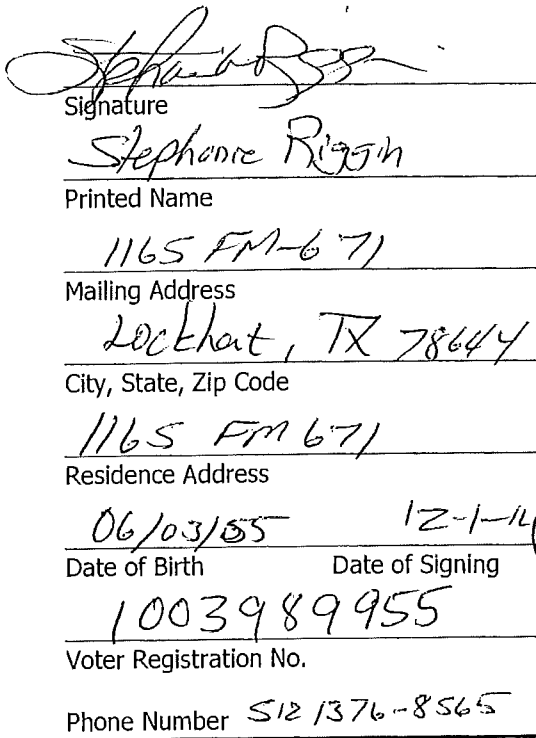 Stephanie Riggin
Signature
Stephanie Riggin
Printed Name
1165 FM-671
Mailing Address
Lockhart, TX 78644
City, State, Zip Code
1165 FM 671
Residence Address
06/03/55 12-1-14
Date of Birth Date of Signing
1003989955
Voter Registration No.
Phone Number 512 1376-8565